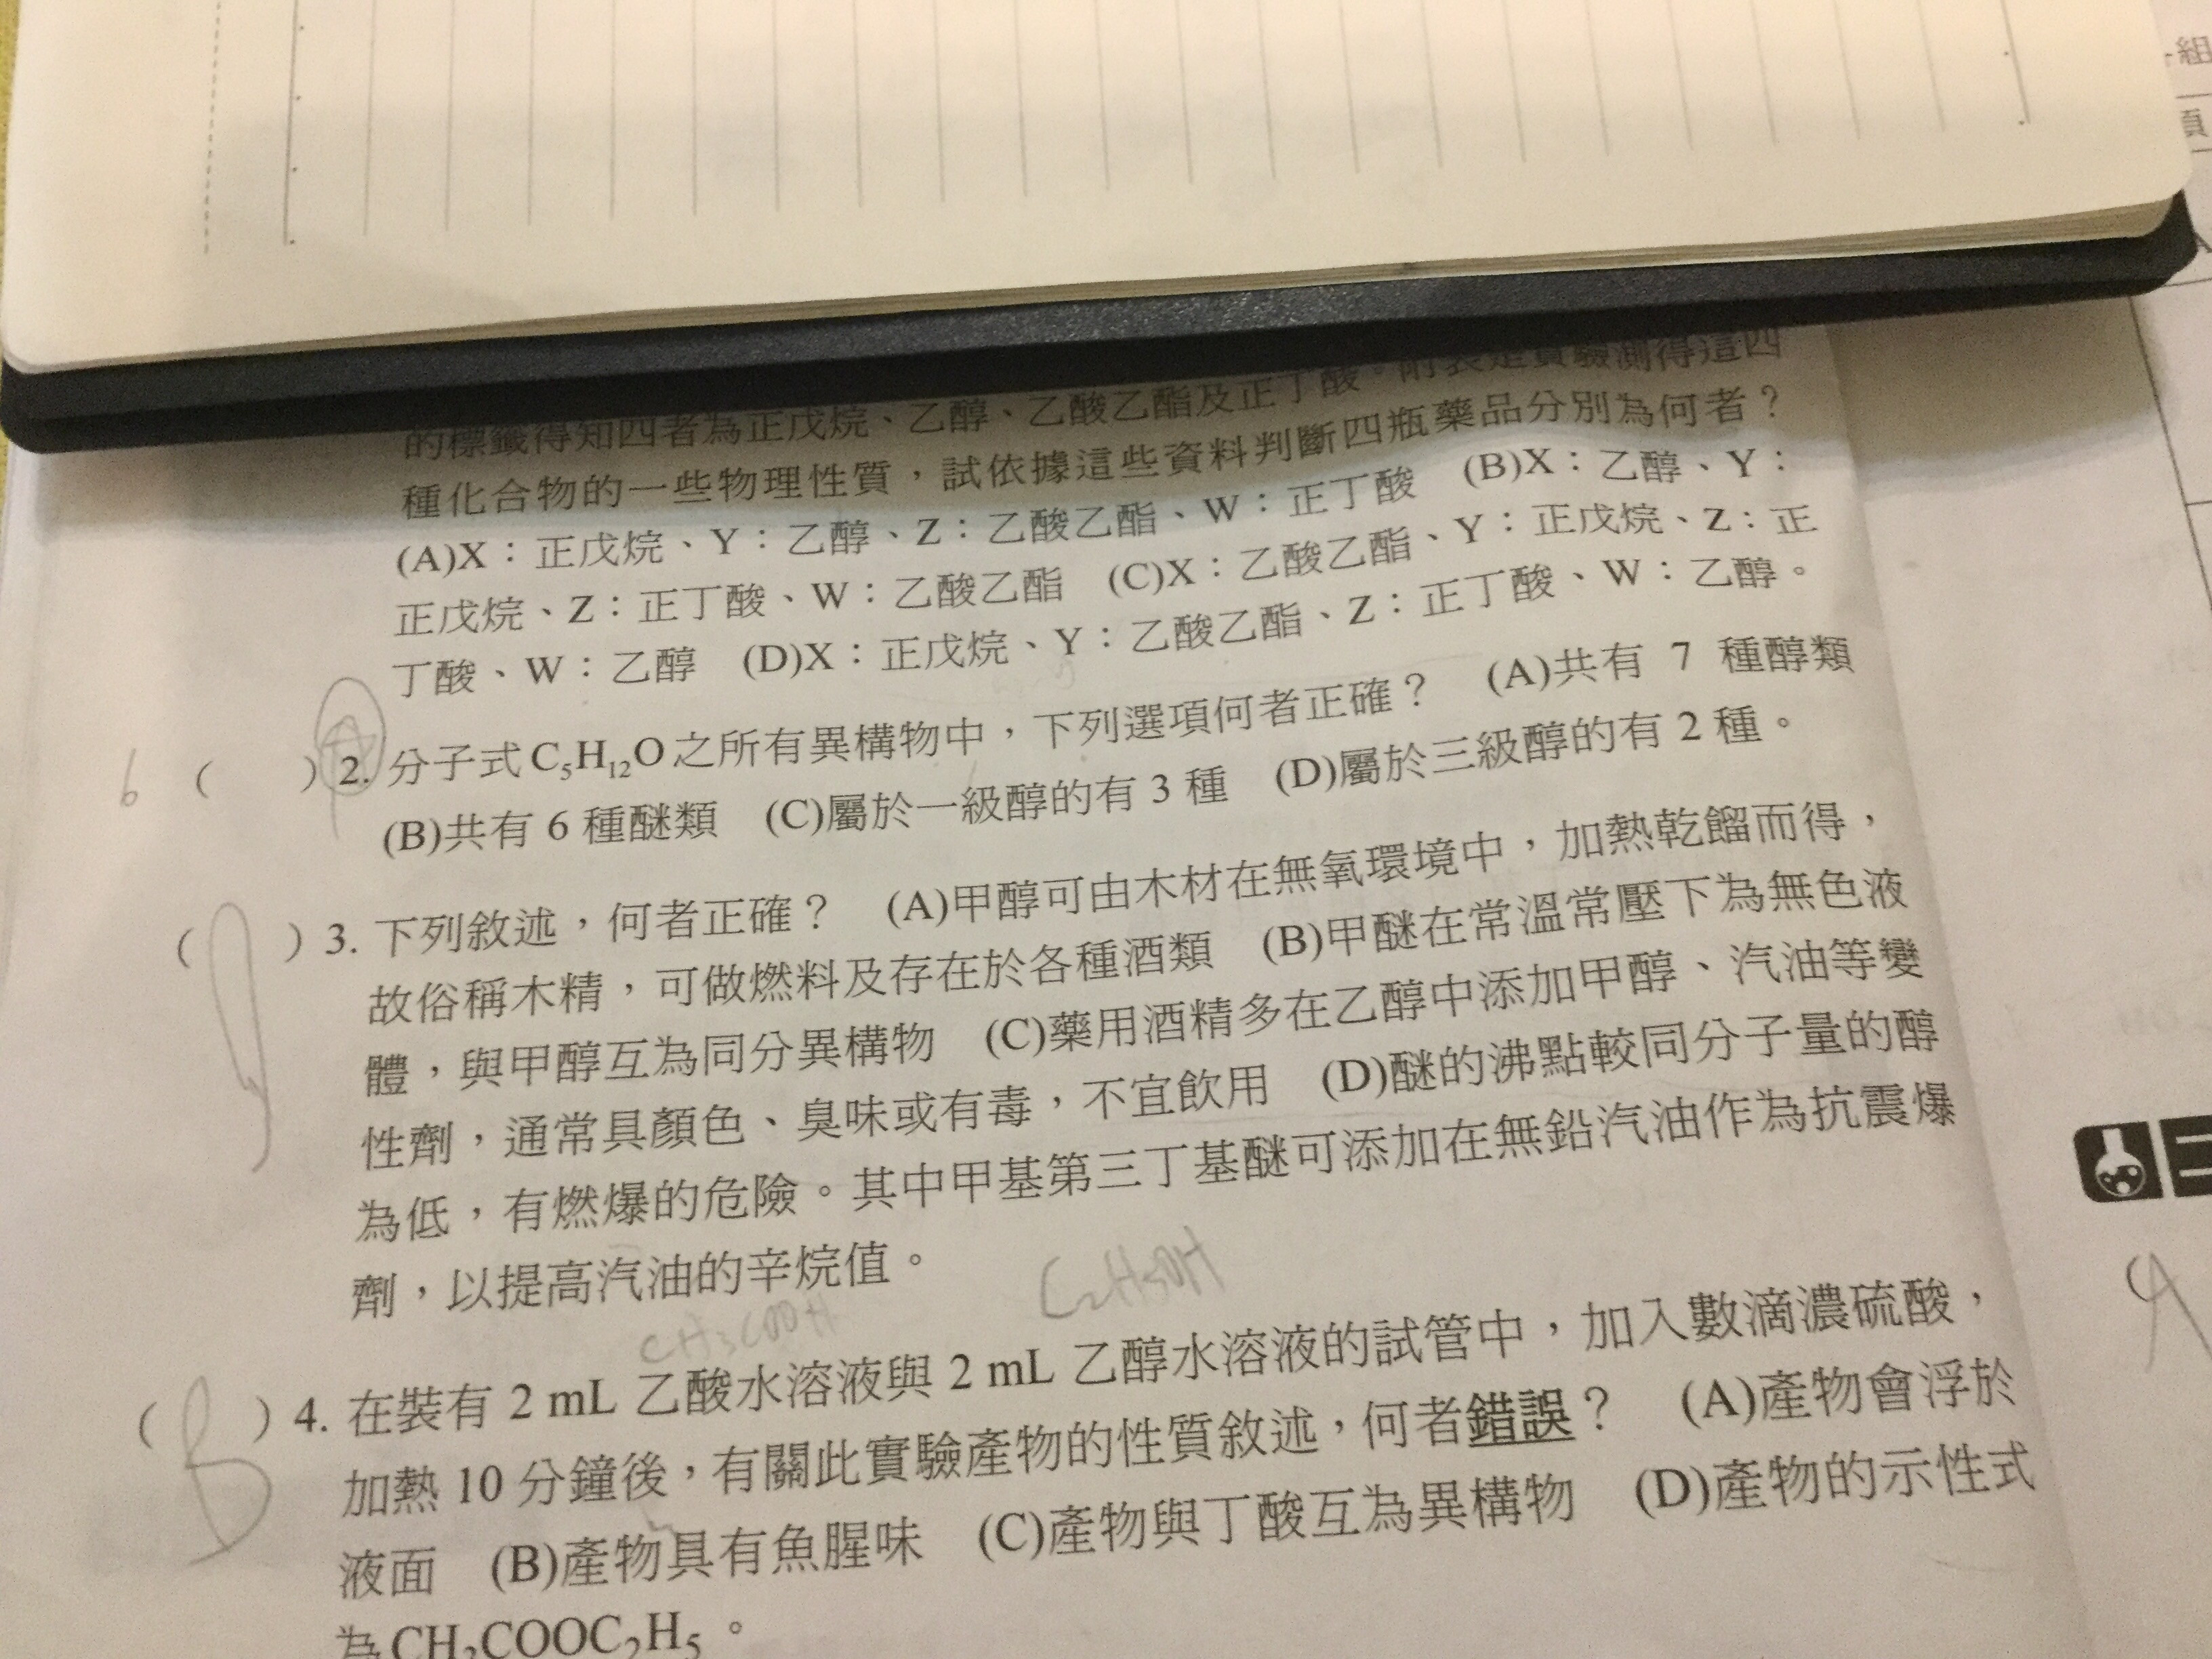 的標籤得知四者為正戊烷、乙醇、乙酸乙酯及正丁酸。附表是實驗測得這四
種化合物的一些物理性質,試依據這些資料判斷四瓶藥品分別為何者?
(A)X:正戊烷、Y:乙醇、Z:乙酸乙酯、W:正丁酸 (B)X:乙醇、Y:
正戊烷、Z:正丁酸、W:乙酸乙酯 (C)X:乙酸乙酯、Y:正戊烷、Z:正
丁酸、W:乙醇 (D)X:正戊烷、Y:乙酸乙酯、Z:正丁酸、W:乙醇。
b ( ) 2. 分子式C₅H₁₂O之所有異構物中,下列選項何者正確? (A)共有 7 種醇類
(B)共有 6 種醚類 (C)屬於一級醇的有 3 種 (D)屬於三級醇的有 2 種。
( ) 3. 下列敘述,何者正確? (A)甲醇可由木材在無氧環境中,加熱乾餾而得,
故俗稱木精,可做燃料及存在於各種酒類 (B)甲醚在常溫常壓下為無色液
體,與甲醇互為同分異構物 (C)藥用酒精多在乙醇中添加甲醇、汽油等變
性劑,通常具顏色、臭味或有毒,不宜飲用 (D)醚的沸點較同分子量的醇
為低,有燃爆的危險。其中甲基第三丁基醚可添加在無鉛汽油作為抗震爆
劑,以提高汽油的辛烷值。
CH3COOH C2H5OH
( B ) 4. 在裝有 2 mL 乙酸水溶液與 2 mL 乙醇水溶液的試管中,加入數滴濃硫酸,
加熱 10 分鐘後,有關此實驗產物的性質敘述,何者錯誤? (A)產物會浮於
液面 (B)產物具有魚腥味 (C)產物與丁酸互為異構物 (D)產物的示性式
為CH₃COOC₂H₅。
組